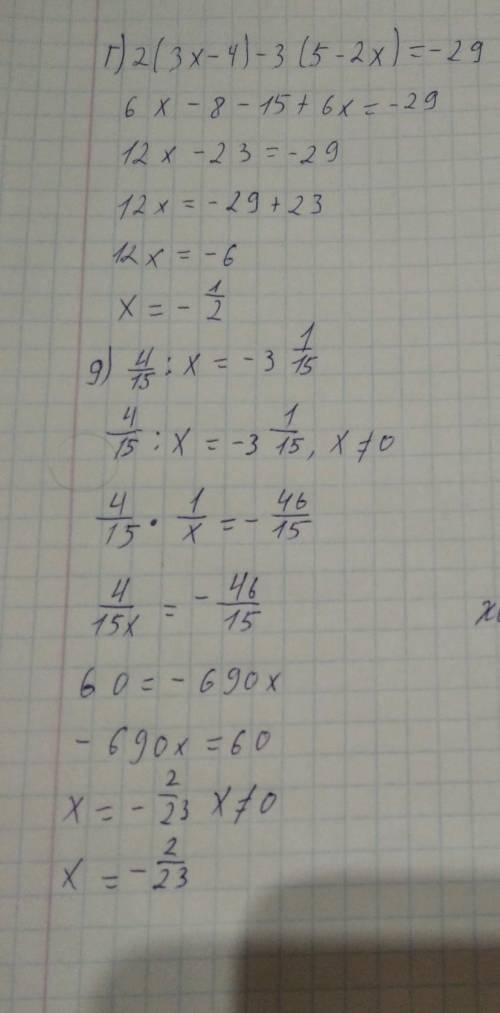 г) 2(3x-4)-3(5-2x)=-29
6x-8-15+6x=-29
12x-23=-29
12x=-29+23
12x=-6
x=-1/2
д) 4/15:x=-3 1/15
4/15:x=-3 1/15, x≠0
4/15·1/x=-46/15
4/15x=-46/15
60=-690x
-690x=60
x=-2/23 x≠0
x=-2/23